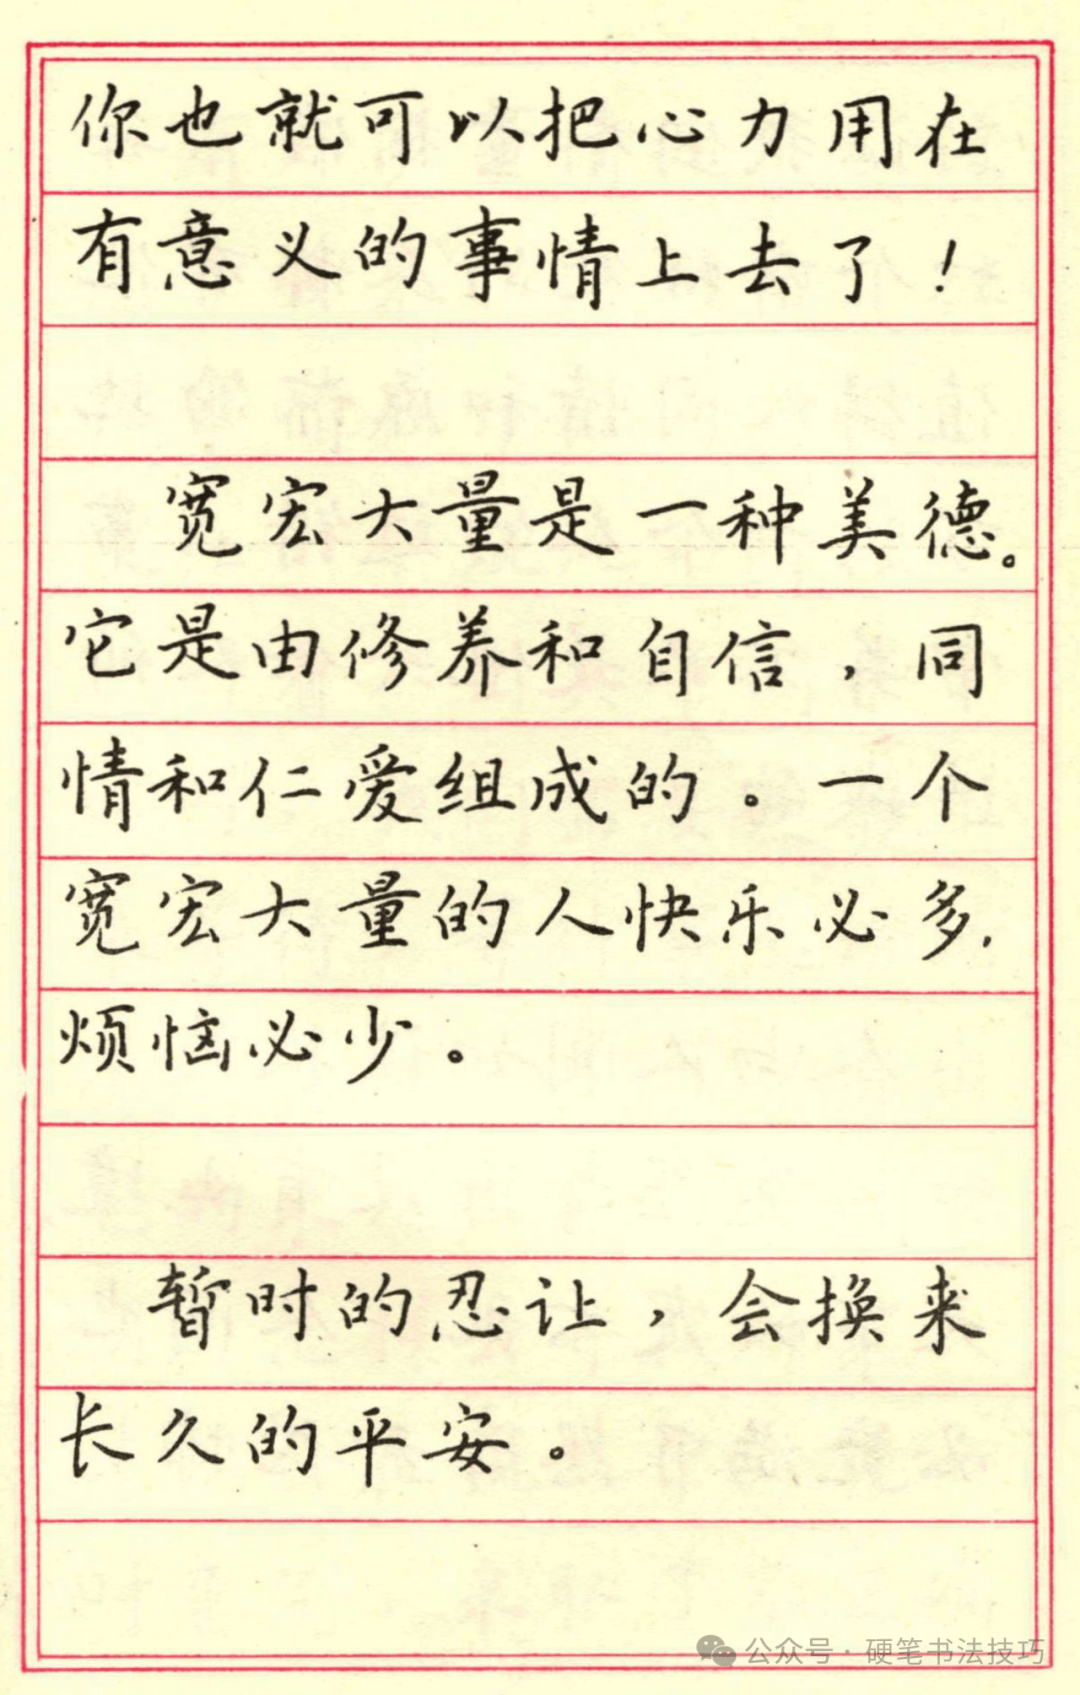 你也就可以把心力用在
有意义的事情上去了！
宽宏大量是一种美德。
它是由修养和自信，同
情和仁爱组成的。一个
宽宏大量的人快乐必多，
烦恼必少。
暂时的忍让，会换来
长久的平安。
公众号·硬笔书法技巧